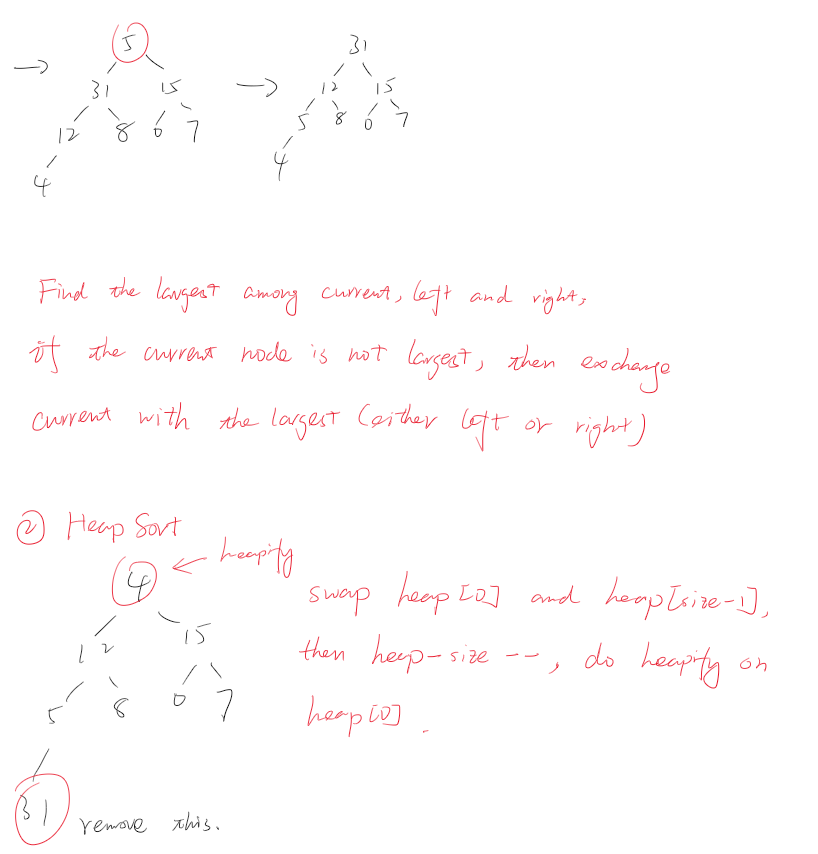 → 5 → 31
31 15 12 15
12 8 0 7 5 8 0 7
4 4
Find the largest among current, left and right,
if the current node is not largest, then exchange
current with the largest (either left or right)
② Heap Sort
4 ← heapify
swap heap[0] and heap[size-1],
12 15
then heap-size --, do heapify on
5 8 0 7
heap[0].
31 remove this.